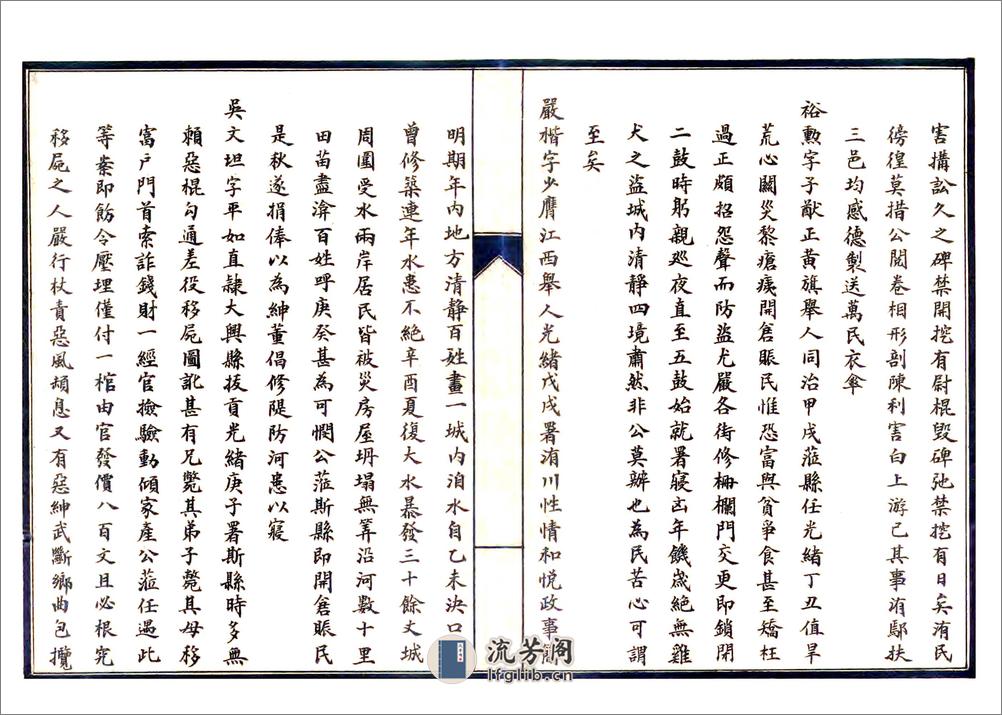 害搆訟久之碑禁開挖有尉棍毀碑弛禁挖有日矣洧民
徬徨莫措公閱卷相形剖陳利害白上游已其事洧鄢扶
三邑均感德製送萬民衣傘
裕勲字子猷正黃旗舉人同治甲戌蒞縣任光緒丁丑值旱
荒心關災黎瘡痍開倉賑民惟恐富與貧爭食甚至矯枉
過正頗招怨聲而防盜尤嚴各街修柵欄門交更即鎖閉
二鼓時躬親巡夜直至五鼓始就署寢凶年饑歲絕無雞
犬之盜城內清靜四境肅然非公莫辦也為民苦心可謂
至矣
嚴楷字少膺江西舉人光緒戊戌署洧川性情和悅政事
明期年內地方清靜百姓畫一城內洎水自乙未決口
曾修築連年水患不絕辛酉夏復大水暴發三十餘丈城
周圍受水兩岸居民皆被災房屋坍塌無筭沿河數十里
田苗盡渰百姓呼庚癸甚為可憫公蒞斯縣即開倉賬民
是秋遂捐俸以為紳董倡修隄防河患以寢
吳文坦字平如直隸大興縣拔貢光緒庚子署斯縣時多無
賴惡棍勾通差役移屍圖訛甚有兄斃其弟子斃其母移
富戶門首索詐錢財一經官撿驗動傾家產公蒞任遇此
等案即飭令壓埋僅付一棺由官發價八百文且必根究
移屍之人嚴行杖責惡風頓息又有惡紳武斷鄉曲包攬
流芳阁
lfglib.cn